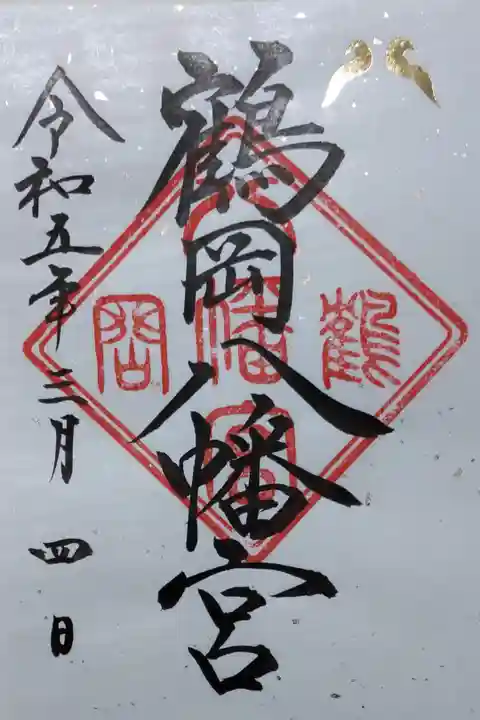 鶴岡八幡宮
令和五年三月四日